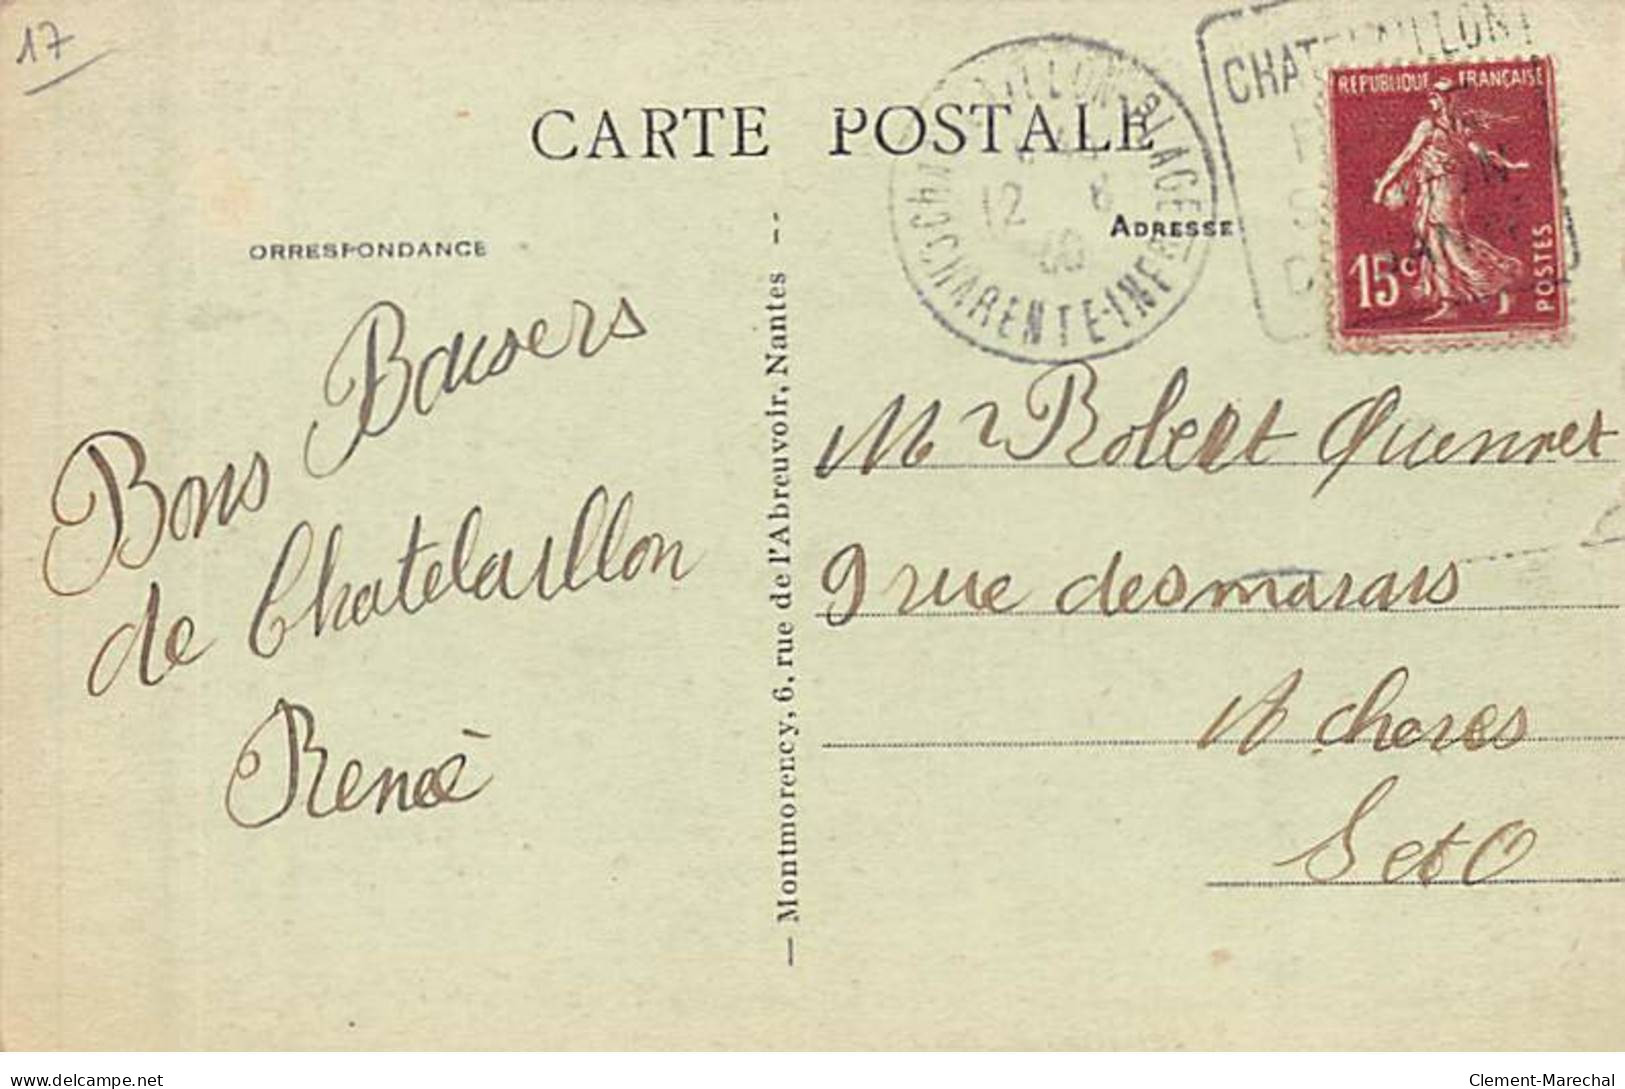 17
CARTE POSTALE
CORRESPONDANCE
ADRESSE
REPUBLIQUE FRANÇAISE
15c
POSTES
CHATELAILLON
CHARENTE-INFRE
12 6
Bons Baisers
de Chatelaillon
Reneé
— Montmorency, 6, rue de l'Abreuvoir, Nantes --
Mr Robert Quennet
9 rue des marais
Acheres
S et O
delcampe.net
Clement-Marechal